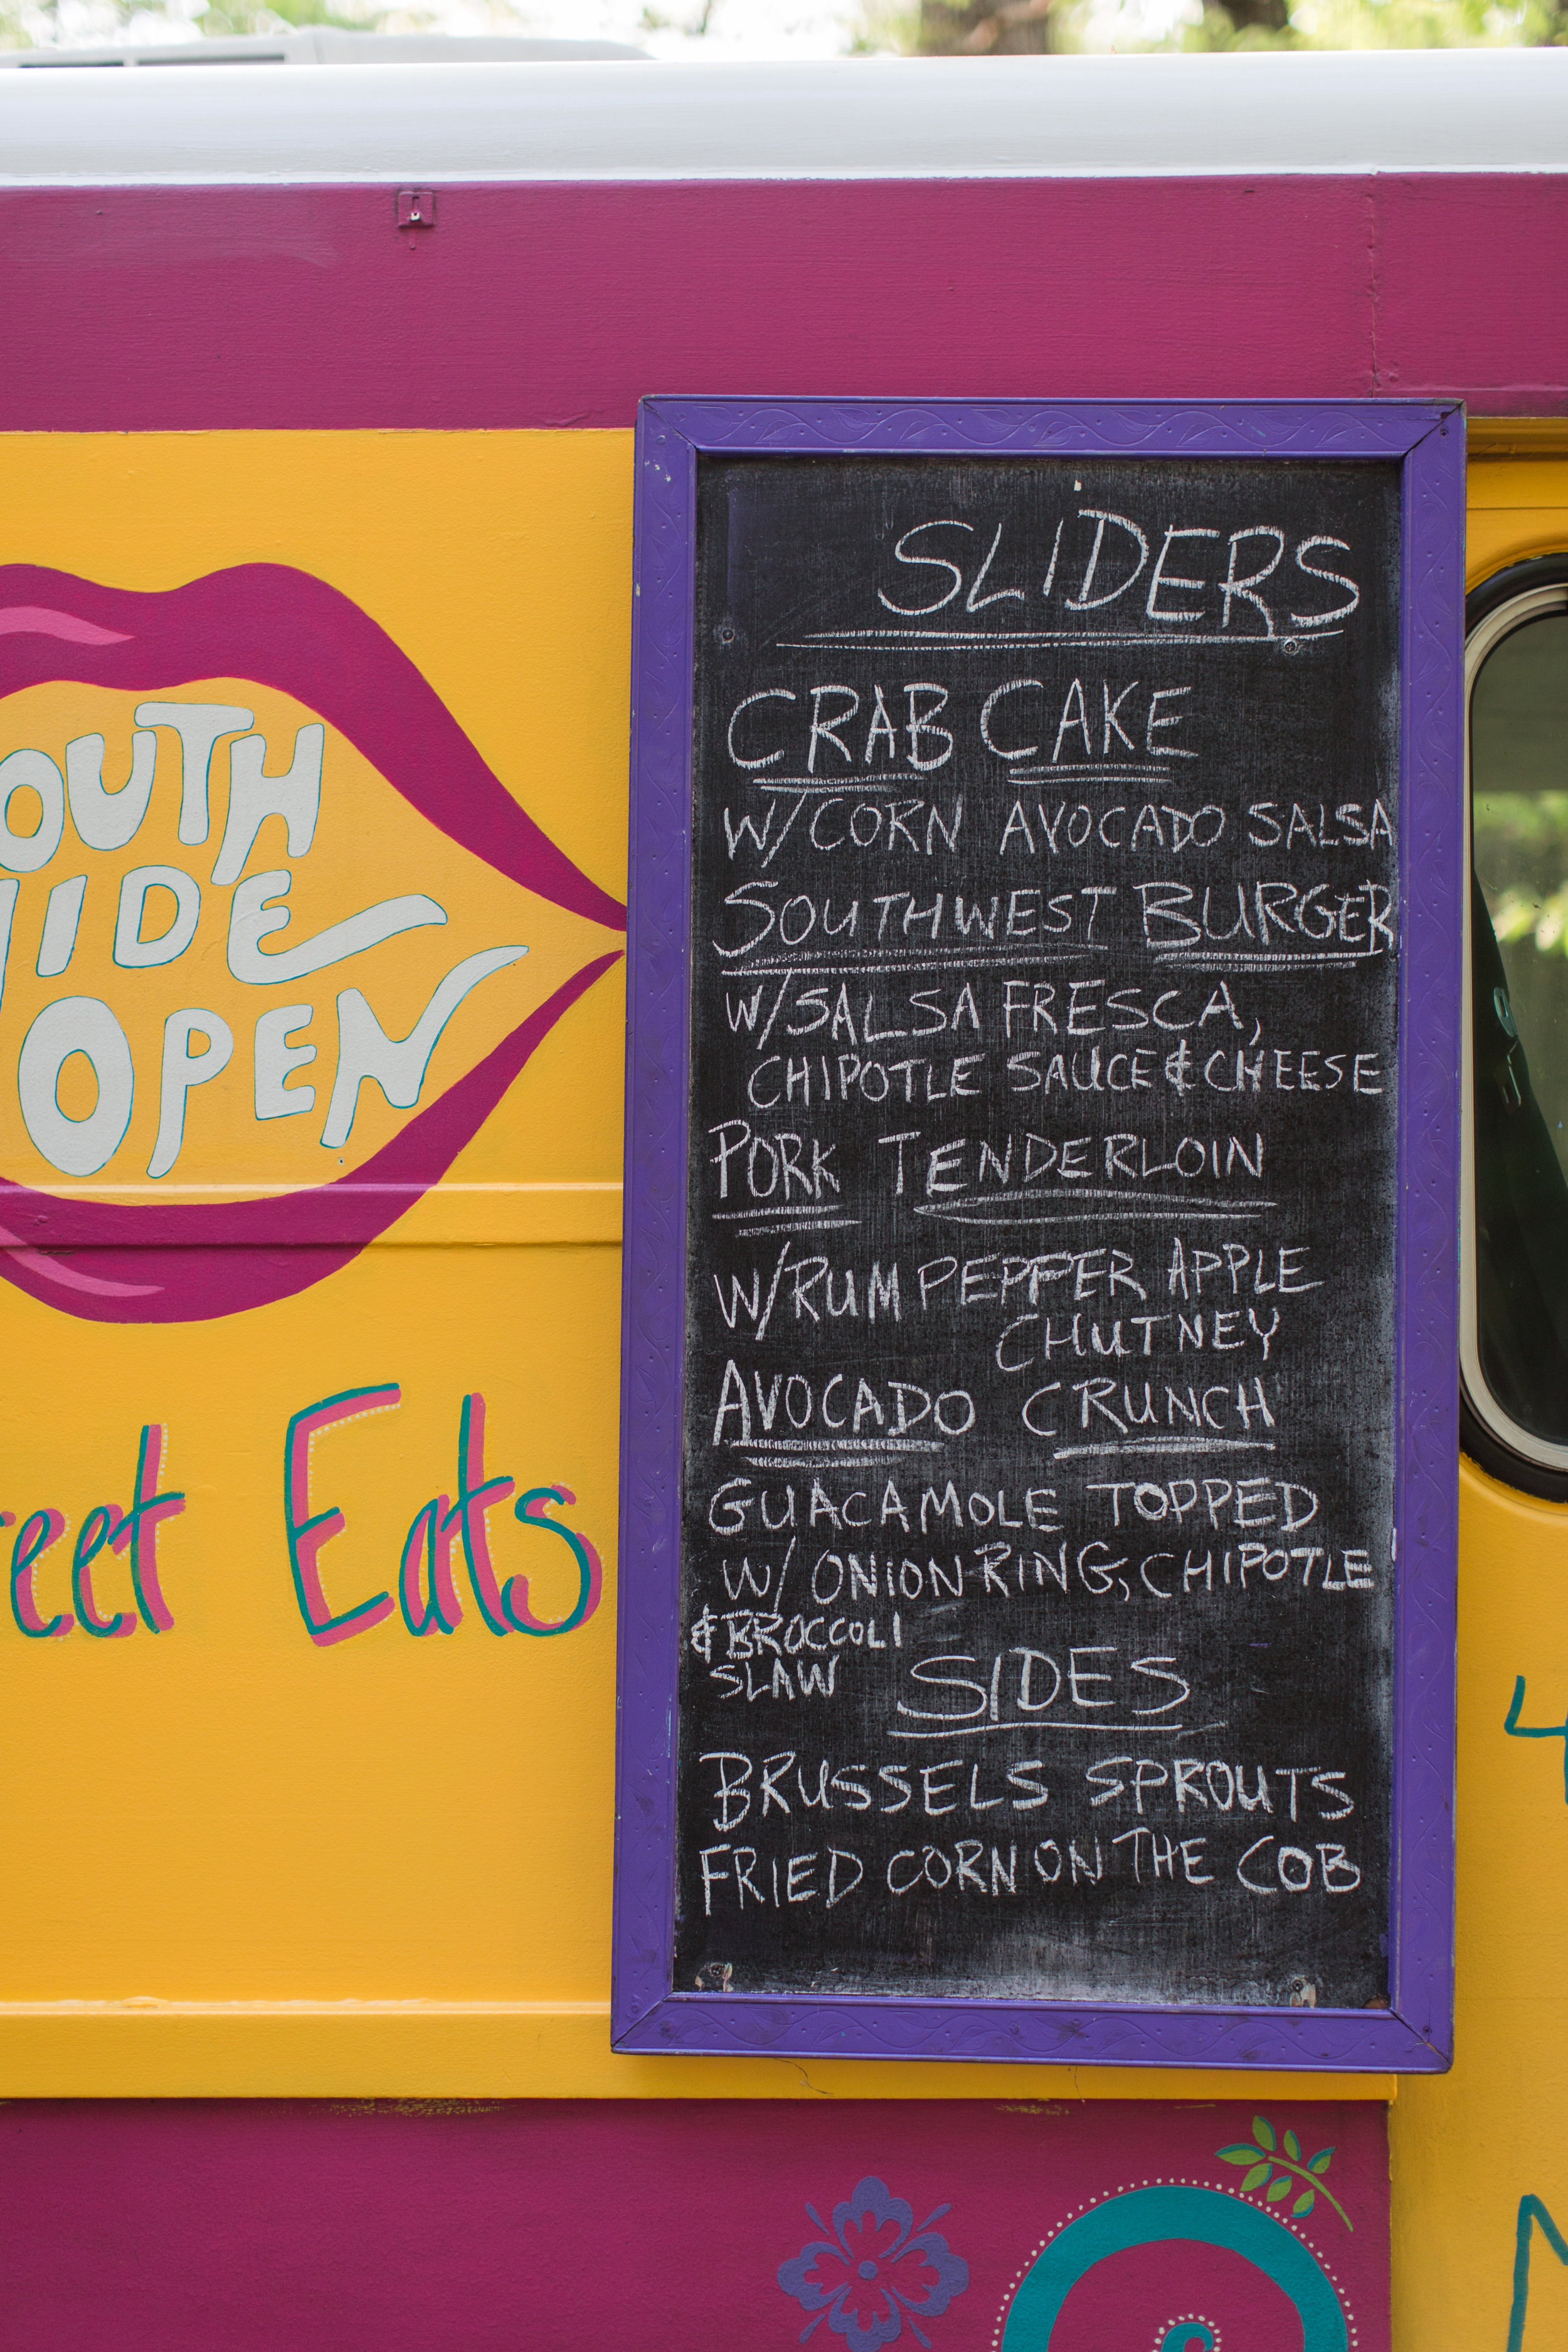 OUTH
IDE
OPEN
reet Eats
SLIDERS
CRAB CAKE
W/CORN AVOCADO SALSA
SOUTHWEST BURGER
W/SALSA FRESCA,
CHIPOTLE SAUCE & CHEESE
PORK TENDERLOIN
W/RUM PEPPER APPLE
CHUTNEY
AVOCADO CRUNCH
GUACAMOLE TOPPED
W/ ONION RING, CHIPOTLE
& BROCCOLI
SLAW
SIDES
BRUSSELS SPROUTS
FRIED CORN ON THE COB
4